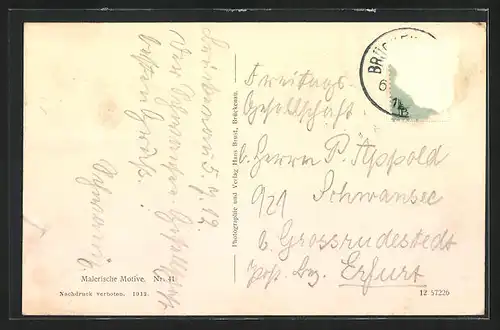 Brückenau 5.7.12
Der Schwansee Gesellschaft
besten Gruß!
Malerische Motive. Nr. 41
Nachdruck verboten. 1912.
Photographie und Verlag Hans Brust, Brückenau.
BRÜCKEN
6
Freitags-
Gesellschaft
b. Herrn P. Appold
Schwansee
b. Grossrudestedt
Erfurt
12 57226